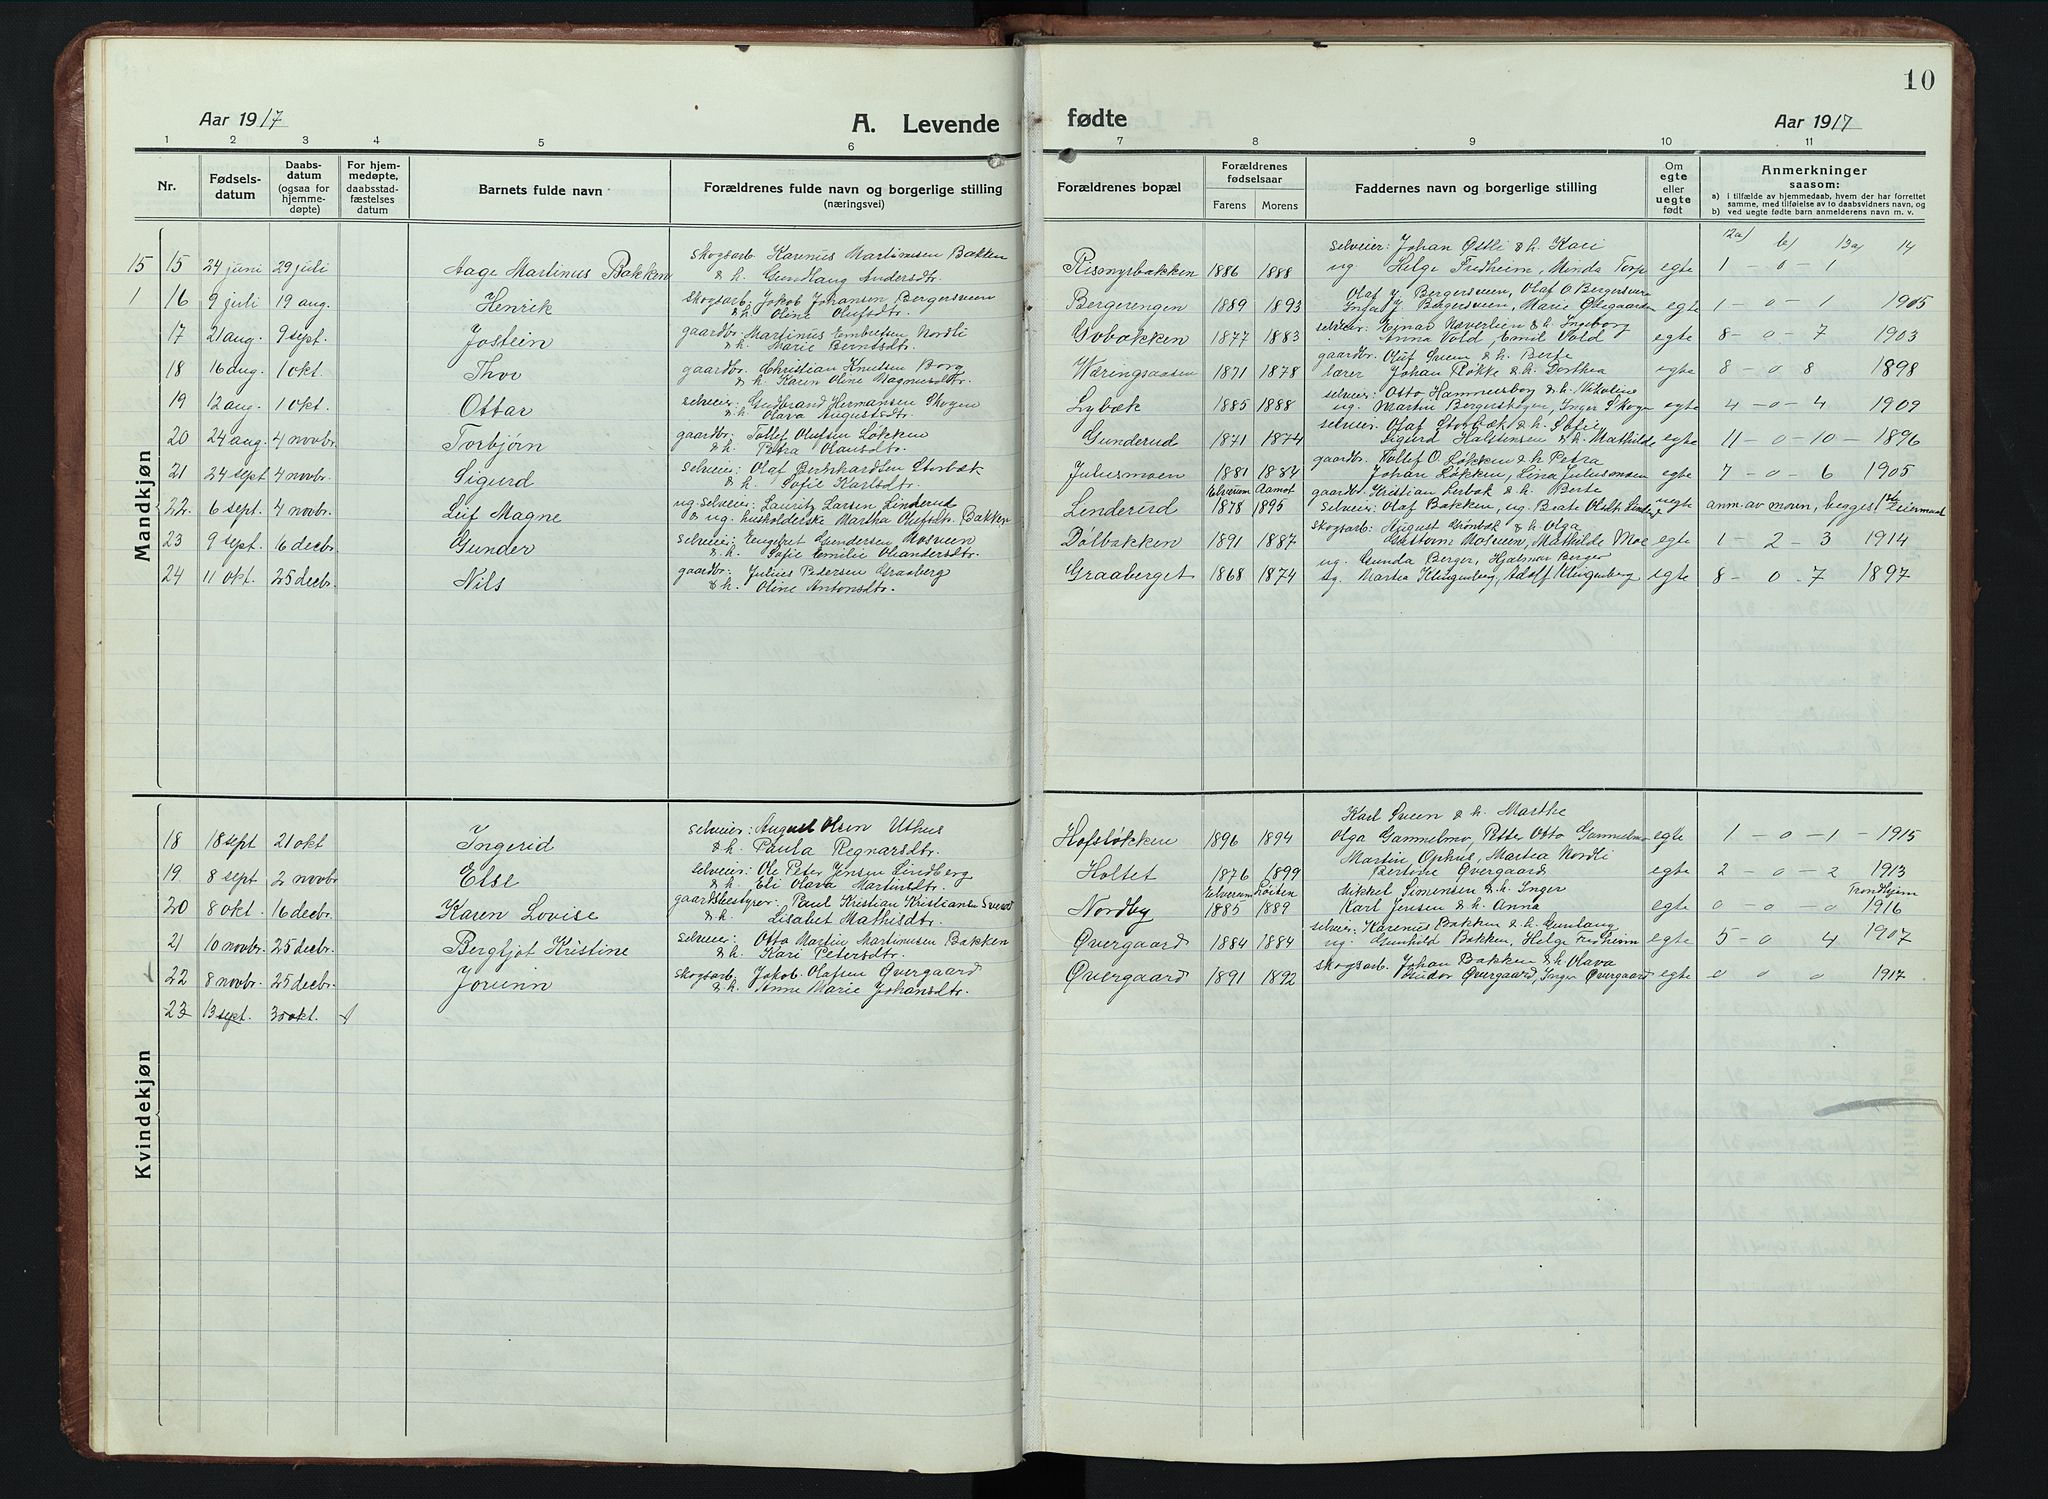 10
Aar 1917
A. Levende fødte
Aar 1917
1 2 3 4 5 6 7 8 9 10 11
Nr.
Fødsels-
datum
Daabs-
datum
(ogsaa for
hjemme-
døpte)
For hjem-
medøpte,
daabsstad-
fæstelses
datum
Barnets fulde navn
Forældrenes fulde navn og borgerlige stilling
(næringsvei)
Forældrenes bopæl
Forældrenes
fødselsaar
Farens Morens
Faddernes navn og borgerlige stilling
Om
egte
eller
uegte
født
Anmerkninger
saasom:
a) i tilfælde av hjemmedaab, hvem der har forrettet
samme, med tilføielse av to daabsvidners navn, og
b) ved uegte fødte barn anmelderens navn m. v.
Mandkjøn
12a) b) 13a) 14
skogsarb. Karenus Martinusen Bakken selveier: Johan Østli & h. Kari
15 15 24 juni 29 juli Aage Martinus Bakken & h. Gundlaug Andersdtr. 1886 1888 ug Helge Fredheim, Minda Torp egte 1 - 0 - 1
skogsarb. Jakob Johansen Bergersveen Olaf J. Bergersveen, Olaf O. Bergersveen
1 16 9 juli 19 aug. Henrik & h. Oline Olufsdtr. Bergerengen 1889 1893 Inga J. Bergersveen, Marie Østgaarden egte 1 - 0 - 1 1905
gaardbr. Martinus Embretsen Nordli selveier: Ejnar Kaverlien & h. Ingeborg
17 21 aug. 9 sept. Jostein & h. Marie Berntsdtr. Govbakken 1877 1883 Anna Vold, Emil Vold egte 8 - 0 - 7 1903
gaardbr. Christian Knutsen Borg gaardbr. Oluf Sveen & h. Berte
18 16 aug. 1 okt. Thor & h. Karen Oline Magnusdtr. Wæringsaasen 1871 1878 lærer Johan Røkke & h. Dorthea egte 8 - 0 8 1898
selveier: Gudbrand Hermansen Skogen selveier: Otto Hammersborg & h. Nikoline
19 12 aug. 1 okt. Ottar & h. Olava Augustsdtr. Lybæk 1885 1888 ug. Martin Bergershagen, Inger Skogen egte 4 - 0 - 4 1909
gaardbr: Tollef Olufsen Løkken selveier: Olaf Storbæk & h. Sofie
20 24 aug. 4 novbr. Torbjørn & h. Petra Olausdtr. Gunderud 1871 1874 Sigurd Halstensen & h. Mathilde egte 11 - 0 - 10 - 1896
selveier: Olaf Bernhardsen Storbæk gaardbr. Tollef O. Løkken & h. Petra
21 24 sept 4 novbr. Sigurd & h. Sofie Karlsdtr. Juliusmoen 1881 1884 Johan Løkken, Lina Juliusmoen egte 7 - 0 - 6 1905
ug. selveier: Lauritz Larsen Linderud Elverum Aamot gaardbr. Kristian Lerbak & h. Berte
22. 6 sept. 4 novbr. Leif Magne & ug. husholderske Martha Olufsdtr. Bakken Linderud 1878 1895 selveier: Olaf Bakken, ug. Beate uegte anm. av moren, begges 1ste leiermaal
selveier: Engebret Gundersen Mosveen skogsarb: August Grønbæk & h. Olga
23 9 sept. 16 decbr. Gunder & h. Sofie Emilie Oleandersdtr. Dølbakken 1891 1887 Guttorm Mosveen, Mathilde Moe egte 1 - 2 - 3 1914
gaardbr: Julius Pedersen Graaberg ug. Gunda Berger, Hjalmar Berger
24 11 okt. 25 decbr. Nils & h. Oline Antonsdtr. Graaberget 1868 1874 Martea Klingenberg, Adolf Klingenberg egte 8 - 0 - 7 1897
Kvindekjøn
selveier: August Olsen Uthus Karl Sveen & h. Marthe
18 18 sept 21 okt Ingerid & h. Paula Regnarsdtr. Hofsløkken 1896 1894 Olga Gammelmo, Petter Otto Gammelmo egte 1 - 0 - 1 - 1915
selveier: Ole Peter Jensen Lindberg Martin Ophus, Martea Nordli
19 8 sept 2 novbr Else & h. Eli Olava Martinsdtr. Holtet 1876 1899 Bertine Øvergaard egte 2 - 0 - 2 1913
gaardsbestyrer: Paul Kristian Kristiansen Elverum Løiten Mikkel Simensen & h. Inger Trondhjem
20 8 okt. 16 decbr. Karen Lovise & h. Lisabet Mathisdtr. Nordby 1885 1889 Karl Jensen & h. Anna egte 0 - 0 - 0 1916
selveier: Otto Martin Martinusen Bakken selveier: Karenus Bakken & h. Gunlaug
21 10 novbr. 25 decbr. Bergljot Kristine & h. Kari Petersdtr. Øvergaard 1884 1884 ug. Gunhild Bakken, Helge Fredheim egte 5 - 0 4 1907
skogsarb. Jakob Olafsen Øvergaard skogsarb. Johan Bakken & h. Olava
22 8 novbr. 25 decbr. Jorunn & h. Anne Marie Johansdtr. Øvergaard 1891 1892 Gudor Øvergaard, Inger Øvergaard egte 0 0 0 1917
23 13 sept. 3 okt.